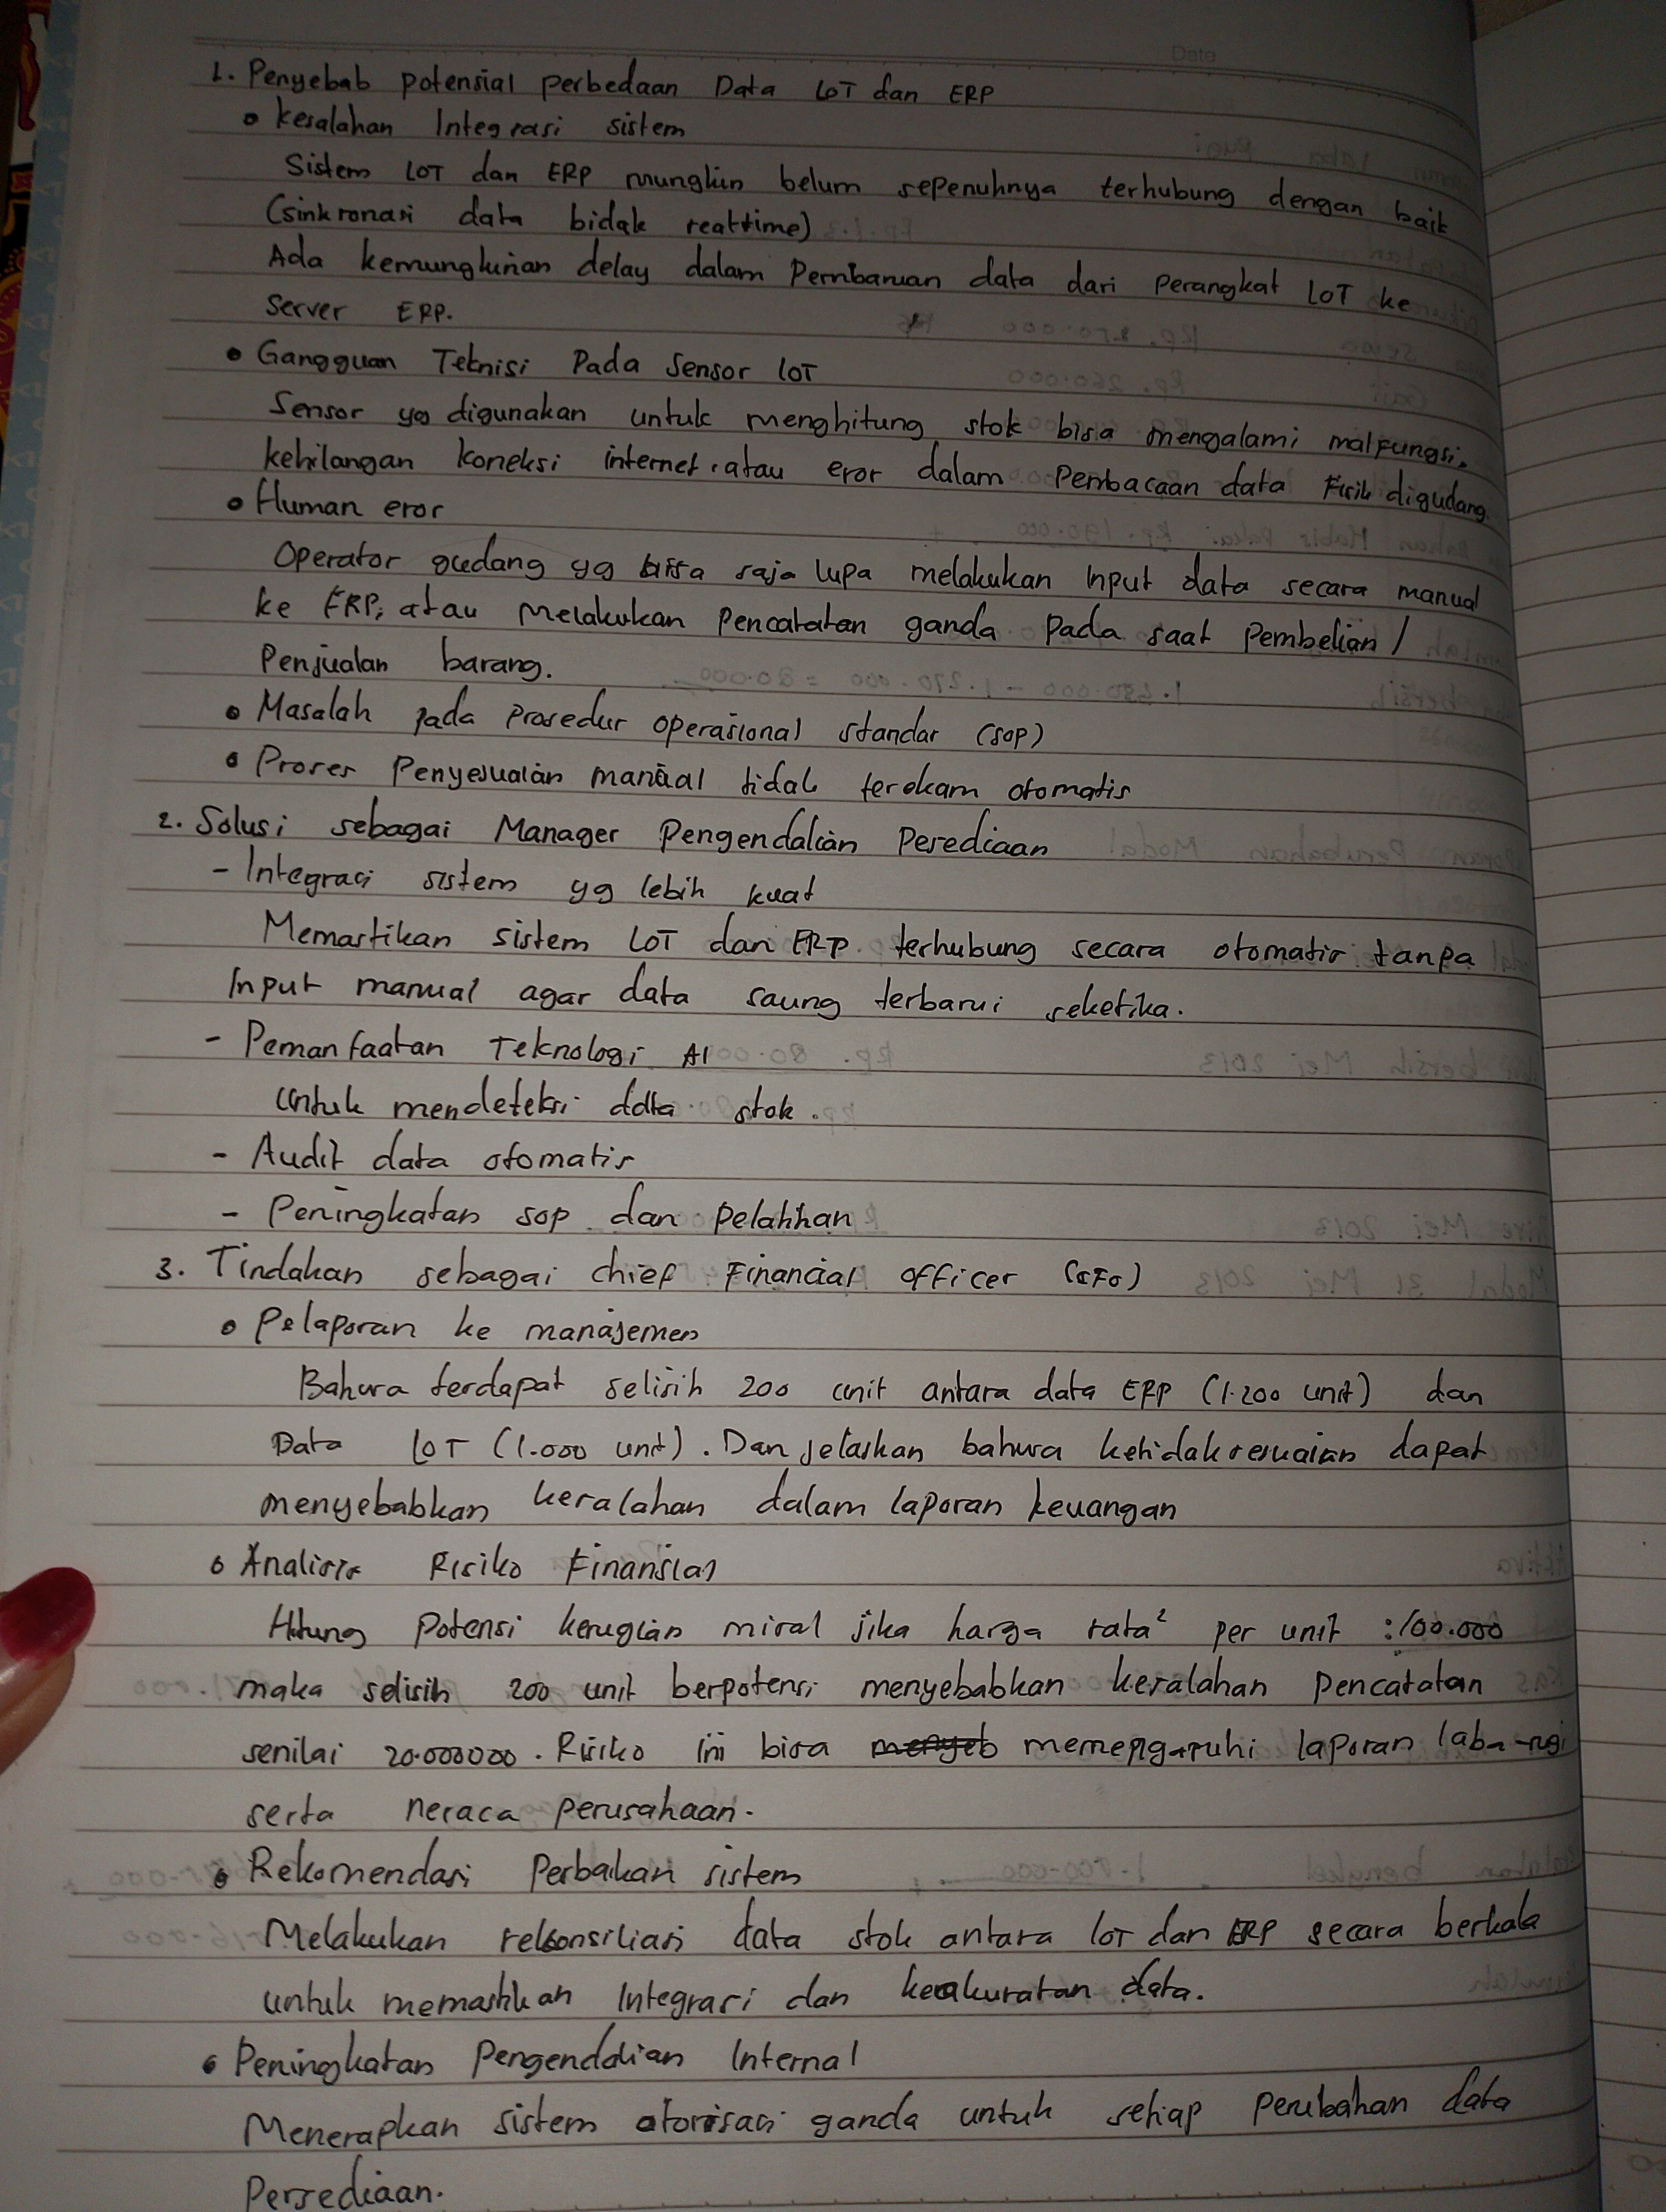 Date
1. Penyebab potensial perbedaan Data LoT dan ERP
• kesalahan Integrasi sistem
Sistem LOT dan ERP mungkin belum sepenuhnya terhubung dengan baik
(sinkronasi data bidak realtime)
Ada kemungkinan delay dalam Pembaruan data dari perangkat LOT ke
Server ERP.
• Gangguan Teknisi Pada Sensor LOT
Sensor yg digunakan untuk menghitung stok bisa mengalami malfungsi,
kehilangan koneksi internet, atau eror dalam Pembacaan data Fisik digudang.
• Human eror
Operator gudang yg bisa saja lupa melakukan Input data secara manual
ke ERP, atau Melakukan Pencatatan ganda Pada saat Pembelian /
Penjualan barang.
• Masalah pada Prosedur operasional standar (SOP)
• Proses Penyesuaian manual tidak terekam otomatis
2. Solusi sebagai Manager Pengendalian Persediaan
- Integrasi sistem yg lebih kuat
Memastikan sistem LOT dan ERP terhubung secara otomatis tanpa
Input manual agar data saung terbarui seketika.
- Pemanfaatan Teknologi AI
Untuk mendeteksi data stok.
- Audit data otomatis
- Peningkatan SOP dan Pelatihan
3. Tindakan sebagai chief Financial officer (CFO)
• Pelaporan ke manajemen
Bahwa terdapat selisih 200 unit antara data ERP (1.200 unit) dan
Data LOT (1.000 unit). Dan jelaskan bahwa ketidaksesuaian dapat
menyebabkan kesalahan dalam laporan keuangan
• Analisis Risiko Finansial
Hitung Potensi kerugian misal jika harga rata² per unit : 100.000
maka selisih 200 unit berpotensi menyebabkan kesalahan Pencatatan
senilai 20.000000. Risiko ini bisa memengaruhi laporan laba-rugi
serta neraca perusahaan.
• Rekomendasi Perbaikan sistem
Melakukan rekonsiliasi data stok antara LOT dan ERP secara berkala
untuk memastikan Integrasi dan keakuratan data.
• Peningkatan Pengendalian Internal
Menerapkan sistem otorisasi ganda untuk setiap Perubahan data
Persediaan.